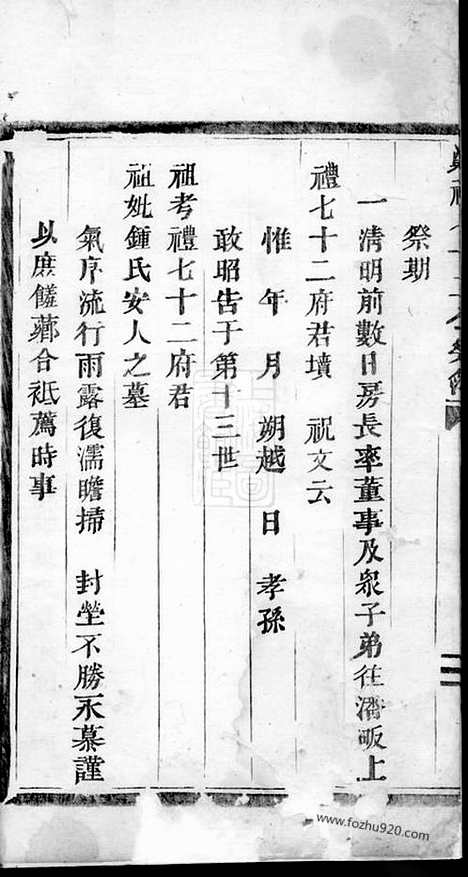 祭期
一清明前數日房長率董事及衆子弟往潘畈上
禮七十二府君墳　祝文云
惟　年　月　朔越　日　孝孫
敢昭告于第十三世
祖考禮七十二府君
祖妣鍾氏安人之墓
氣序流行雨露復濡瞻掃　封塋不勝永慕謹
以庶饈薌合祗薦時事
www.fozhu920.com